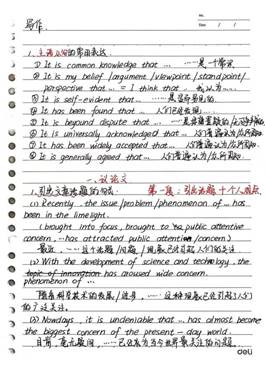 No.
Date / /
写作.
1. 主语从句的常用表达:
① It is common knowledge that … ……是一个常识
② It is my belief /argument /viewpoint /standpoint/
perspective that … = I think that … 我认为……
③ It is self-evident that … ……是显而易见的.
④ It has been found that … 人们已经发现……
⑤ It is beyond dispute that …
⑥ It is universally acknowledged that … 人们普遍认为/众所周知.
⑦ It has been widely accepted that … 人们普遍认为/众所周知.
⑧ It is generally agreed that … 人们普遍认为/众所周知.
一、议论文
1. 引出文章话题的句型. 第一段: 引出话题 + 个人观点.
(1) Recently, the issue/problem/phenomenon of … has
been in the limelight.
(brought into focus, brought to public attentive
concern, … has attracted public attention/concern)
最近, ……这个话题/问题/现象已经引起人们的关注.
(2) With the development of science and technology, the
topic of innovation has aroused wide concern.
phenomenon of …
随着科学技术的发展/进步, ……这种现象已经引起了人们
的广泛关注.
(3) Nowadays, it is undeniable that … has almost become
the biggest concern of the present-day world.
目前, 毫无疑问, ……已经成为当今世界最关注的问题.
deli